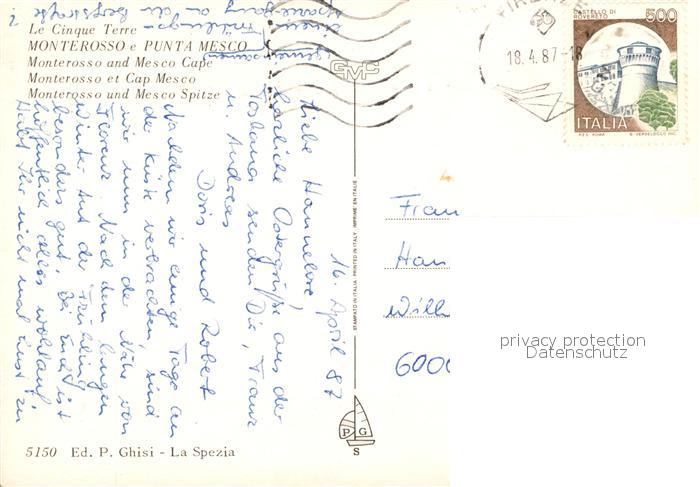 Le Cinque Terre
MONTEROSSO e PUNTA MESCO
Monterosso and Mesco Cape
Monterosso et Cap Mesco
Monterosso und Mesco Spitze
GMF
STAMPATO IN ITALIA - PRINTED IN ITALY - IMPRIMÉ EN ITALIE
PG
S
5150 Ed. P. Ghisi - La Spezia
18.4.87-18
CASTELLO DI
ROVERETO
500
ITALIA
16. April 87
Liebe Hannelore,
herzliche Ostergrüße aus der
Toskana senden Dir, Franz
u. Andreas
Doris und Robert
Nachdem wir einige Tage an
der Küste verbrachten, sind
wir nun in der Nähe von
Florenz. Nach dem langen
Winter tut der Frühling
besonders gut. Bei Euch ist
hoffentlich alles wohlauf.
Habt Ihr nicht mal Lust zu
einem Frühlings-
spaziergang an der Bergstraße
?
Frau
Han
Wilh
6000
privacy protection
Datenschutz